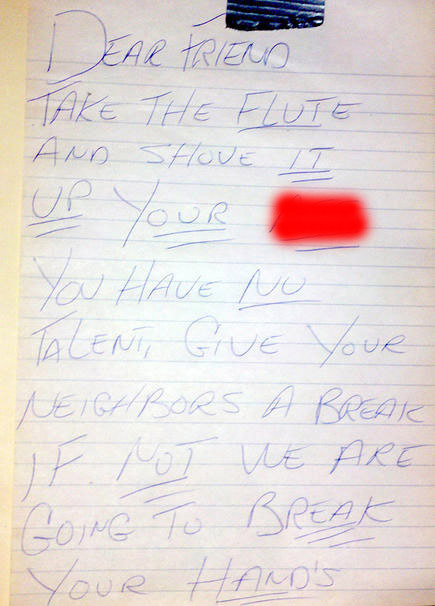 DEAR FRIEND
TAKE THE FLUTE
AND SHOVE IT
UP YOUR
YOU HAVE NO
TALENT, GIVE YOUR
NEIGHBORS A BREAK
IF NOT WE ARE
GOING TO BREAK
YOUR HAND'S